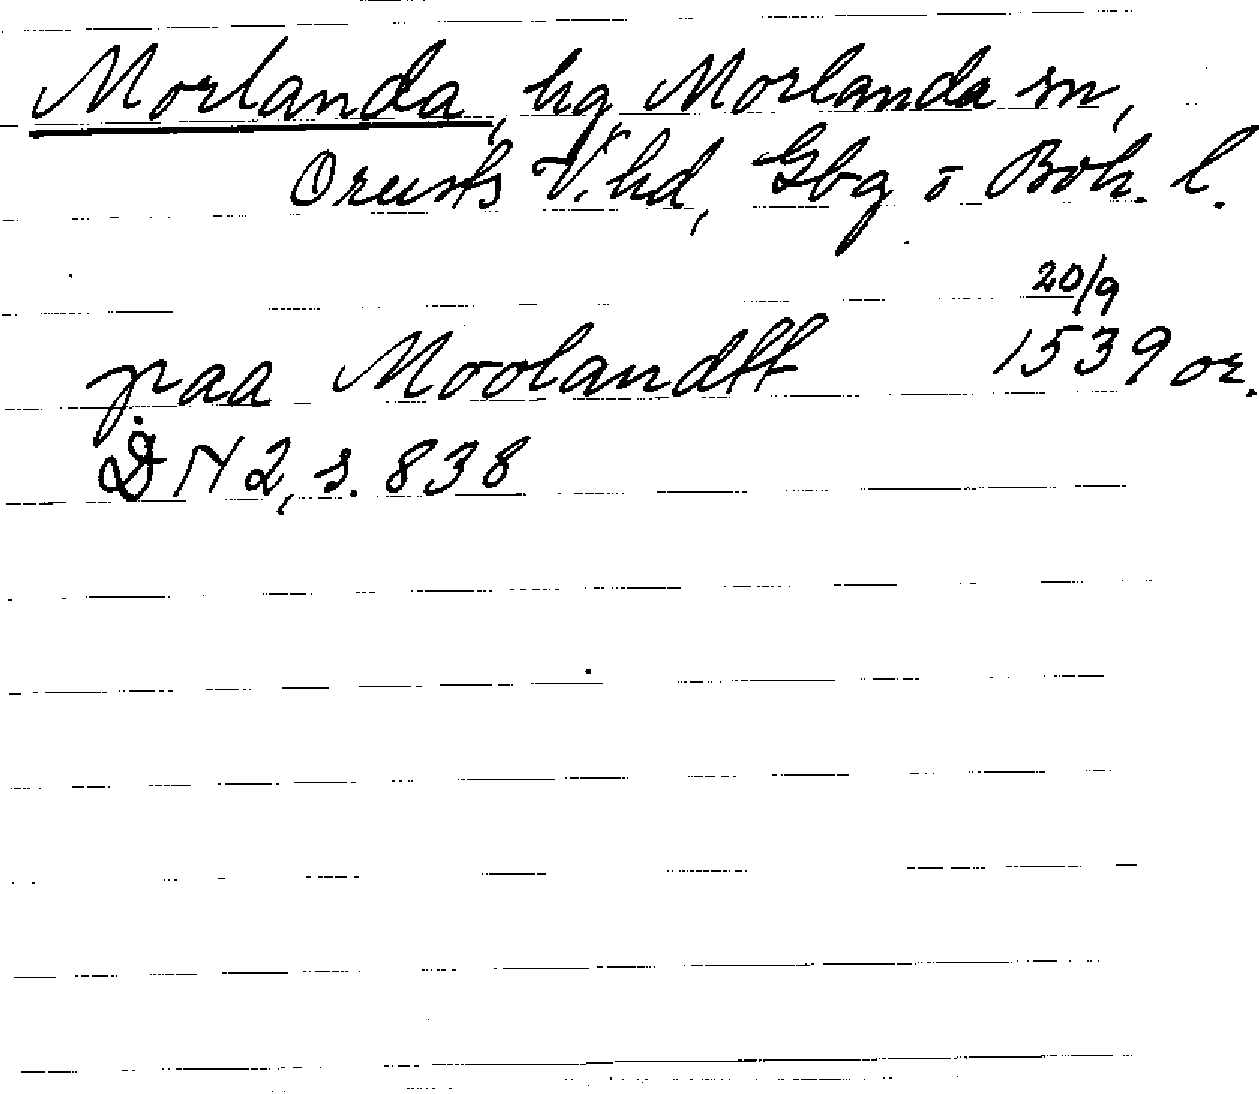 Morlanda, hg, Morlanda sn,
Orusts V. hd, Gbg o Boh. l.
20/9
paa Moolandtt 1539 or.
DN 2, s. 838